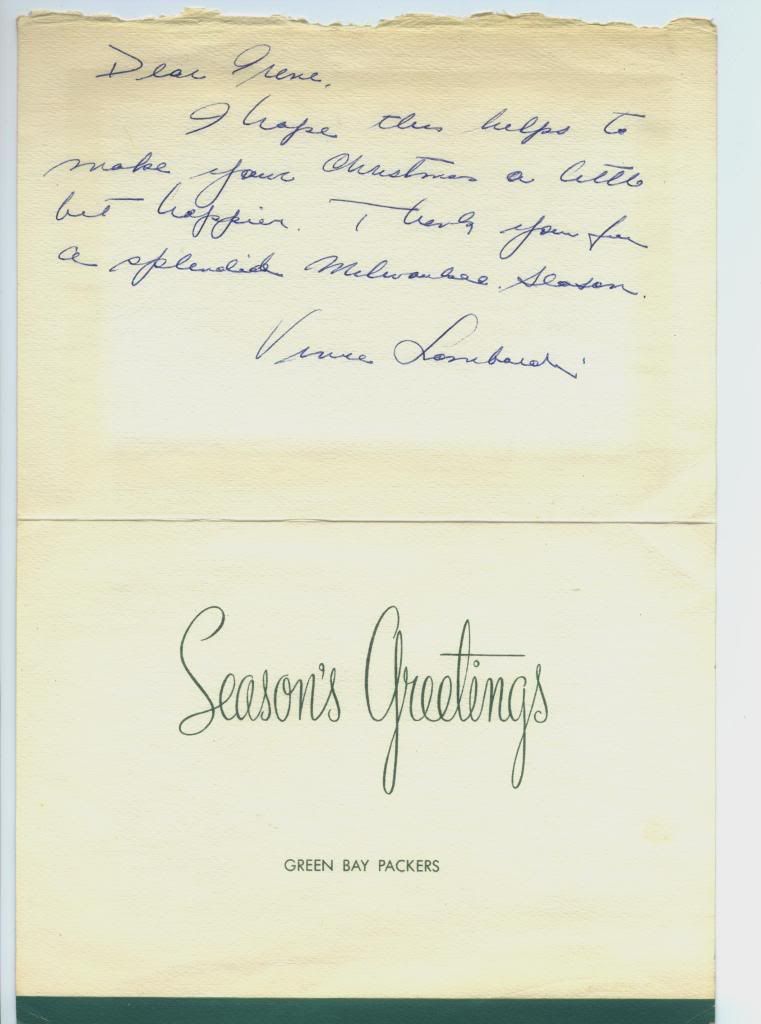 Dear Irene,
I hope this helps to
make your Christmas a little
bit happier. Thank you for
a splendid Milwaukee season.
Vince Lombardi
Season's Greetings
GREEN BAY PACKERS